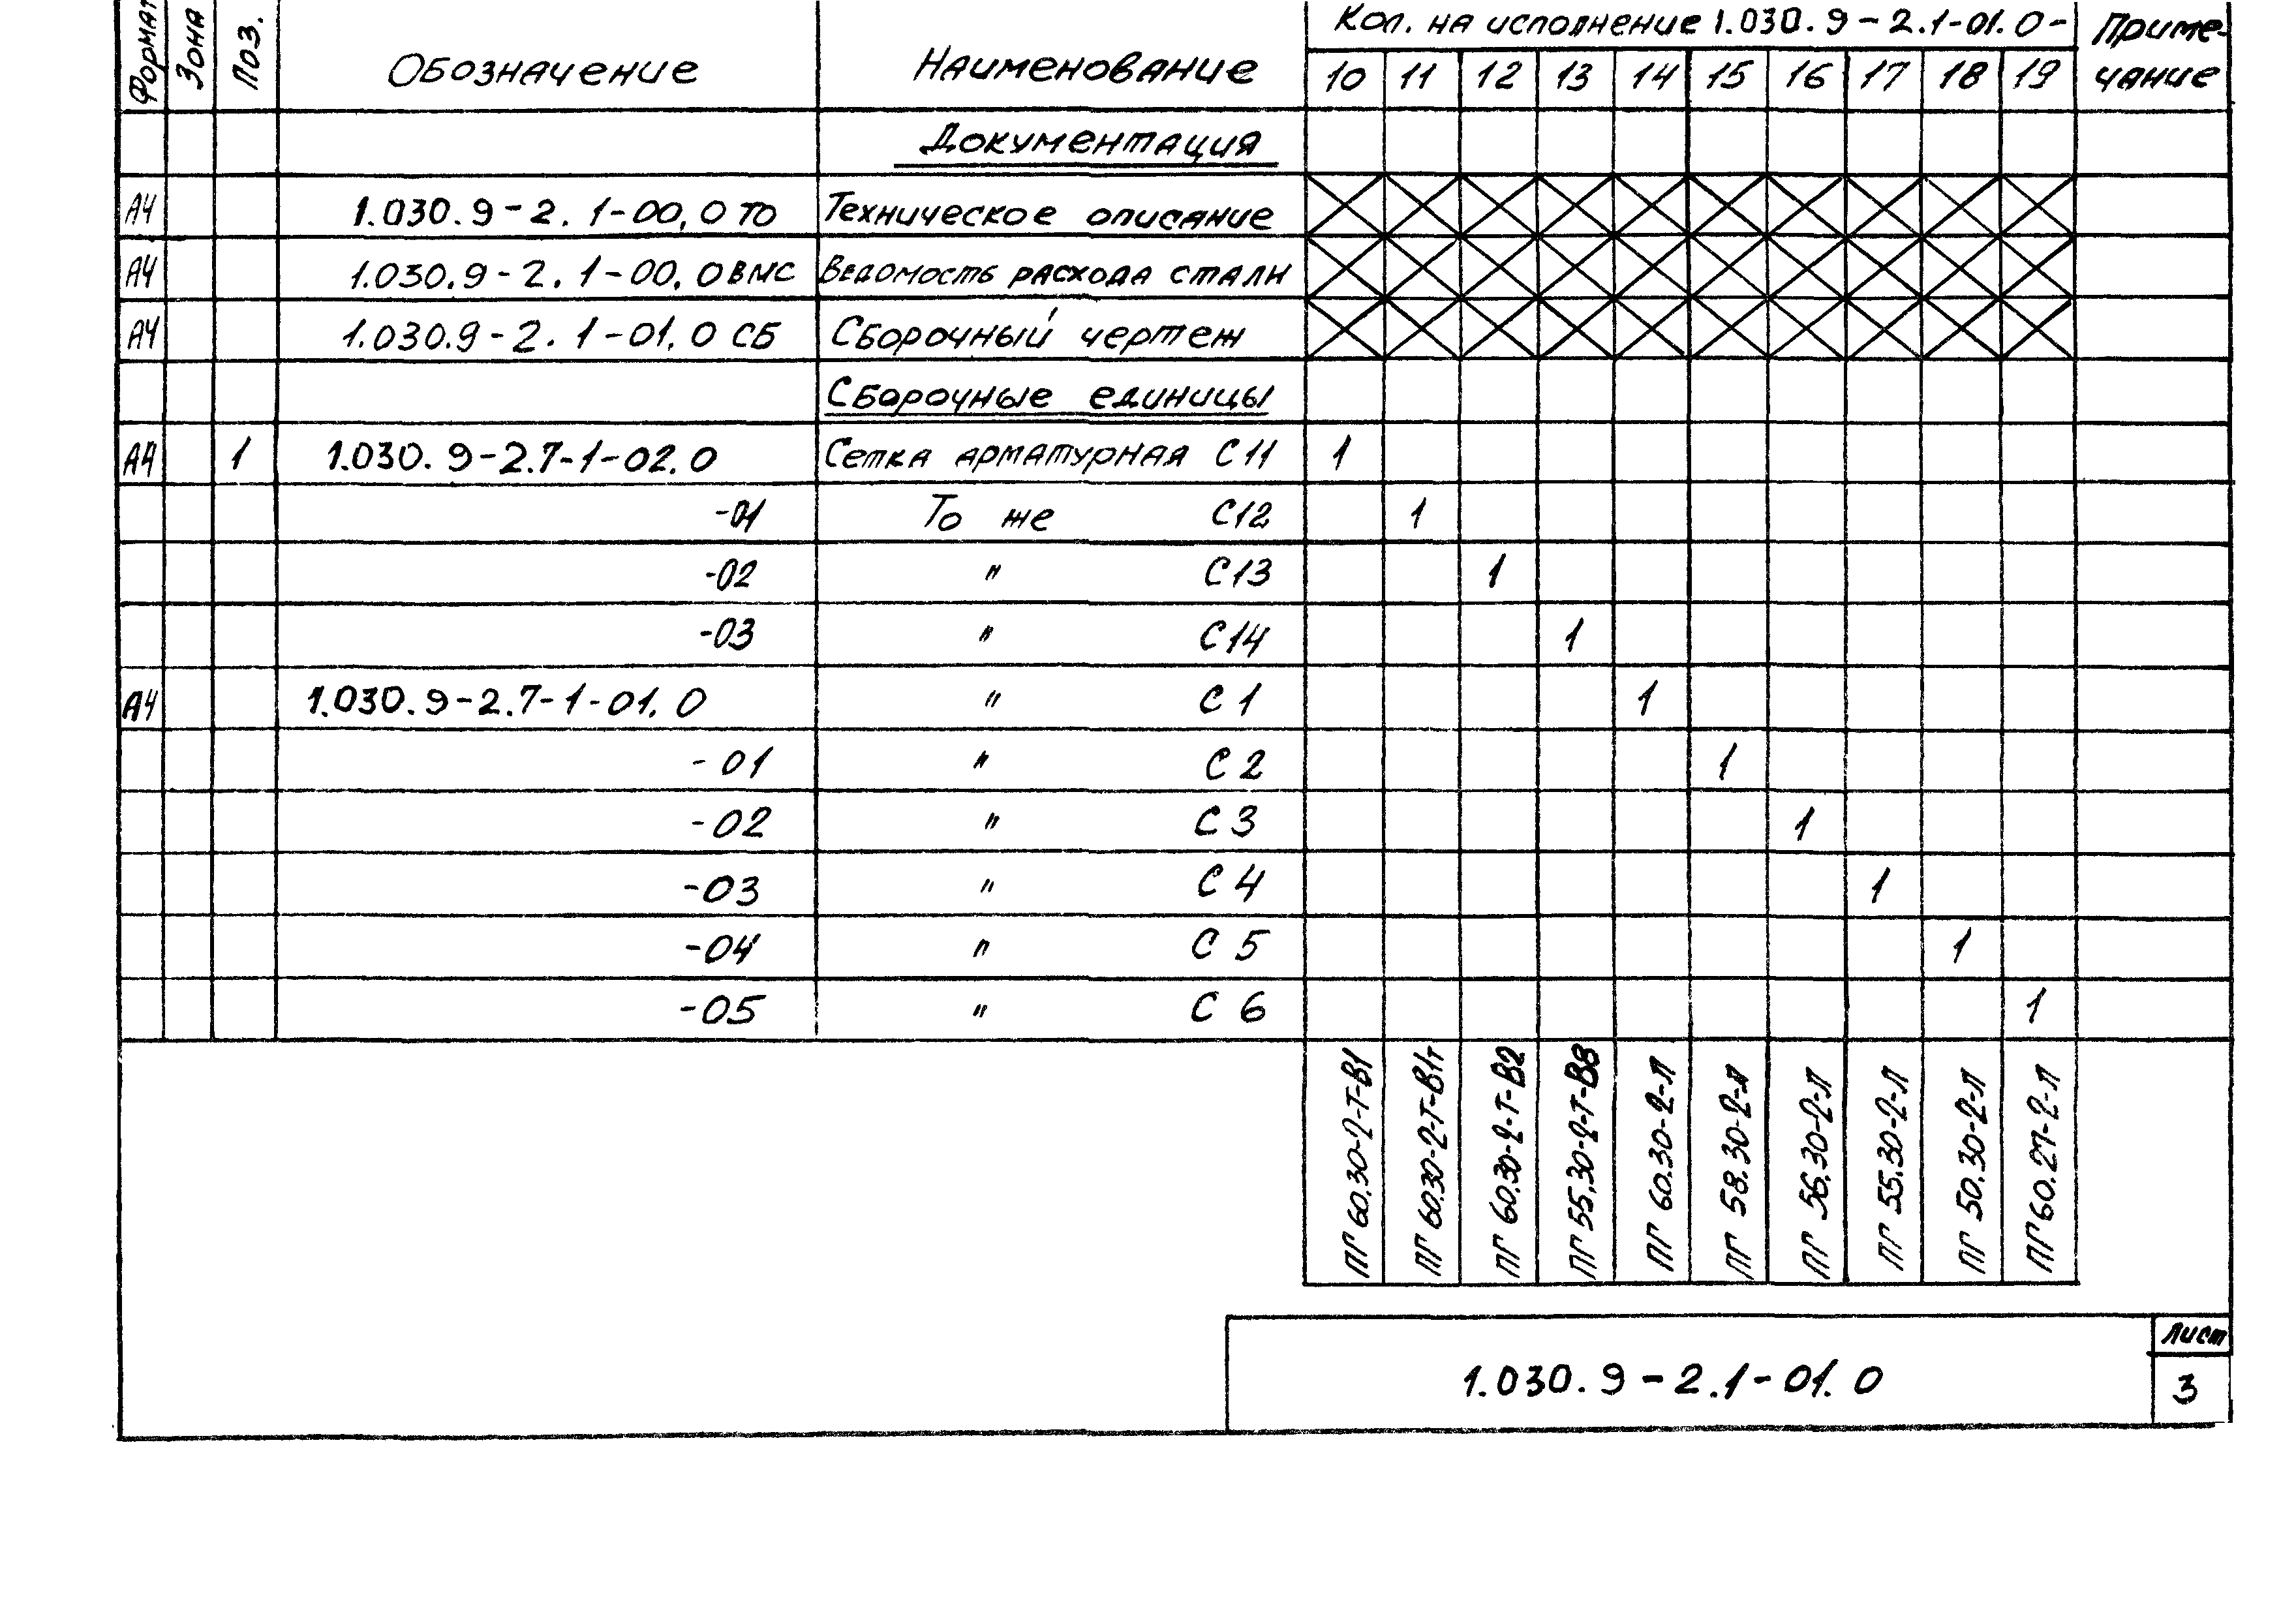 Формат Зона Поз. Обозначение Наименование Кол. на исполнение 1.030.9-2.1-01.0- Приме-
чание
10 11 12 13 14 15 16 17 18 19
Документация
А4 1.030.9-2.1-00.0 ТО Техническое описание
А4 1.030.9-2.1-00.0 ВМС Ведомость расхода стали
А4 1.030.9-2.1-01.0 СБ Сборочный чертеж
Сборочные единицы
А4 1 1.030.9-2.7-1-02.0 Сетка арматурная С11 1
-01 То же С12 1
-02 " С13 1
-03 " С14 1
А4 1.030.9-2.7-1-01.0 " С1 1
-01 " С2 1
-02 " С3 1
-03 " С4 1
-04 " С5 1
-05 " С6 1
ПГ 60.30-2-Т-В1
ПГ 60.30-2-Т-В1т
ПГ 60.30-2-Т-В2
ПГ 55.30-2-Т-В8
ПГ 60.30-2-Л
ПГ 58.30-2-Л
ПГ 56.30-2-Л
ПГ 55.30-2-Л
ПГ 50.30-2-Л
ПГ 60.27-2-Л
1.030.9-2.1-01.0
Лист
3